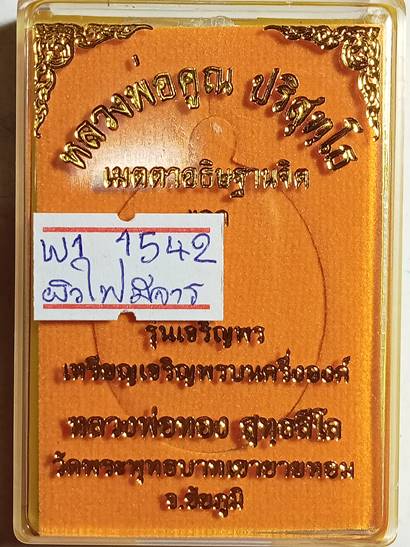 หลวงพ่อคูณ ปริสุทฺโธ
เมตตาอธิษฐานจิต
พ1 1542
ผิวไฟมีจาร
รุ่นเจริญพร
เหรียญเจริญพรบนครึ่งองค์
หลวงพ่อทอง สุทธสีโล
วัดพระพุทธบาทเขายายหอม
จ.ชัยภูมิ